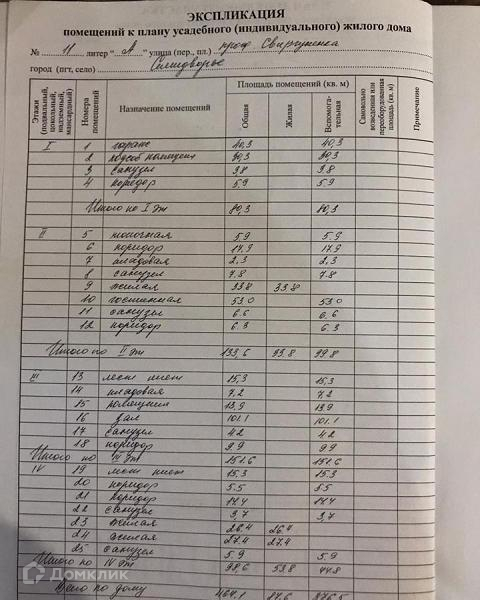 ЭКСПЛИКАЦИЯ
помещений к плану усадебного (индивидуального) жилого дома
№ 11 литер "А" улица (пер., пл.) проф
город (пгт, село)
Этажи (подвальный, цокольный, надземный, мансардный)
Номера помещений
Назначение помещений
Площадь помещений (кв. м)
Общая
Жилая
Вспомогательная
Самовольно возведенная или переоборудованная площадь (кв. м)
Примечание
I 1 гараж 40,3 40,3
2 подсоб помещен 30,3 30,3
3 санузел 3.8 3.8
4 коридор 5.9 5.9
Итого по I эт 80,3 80,3
II 5 5.9 5.9
6 коридор 17,9 17,9
7 кладовая 2,3 2,3
8 санузел 7.8 7.8
9 жилая 33.8 33.8
10 гостинная 53.0 53.0
11 санузел 6.6 6.6
12 коридор 6.3 6.3
Итого по II эт 133,6 33,8 99.8
III 13 лест клет 15,3 15,3
14 кладовая 7,2 7,2
15 13,9 13,9
16 зал 101.1 101.1
17 санузел 4.2 4.2
18 коридор 9.9 9.9
Итого по III эт 151.6 151.6
IV 19 лест клет 15.3 15.3
20 коридор 5.5 5.5
21 коридор 14.4 14.4
22 санузел 3,7 3,7
23 жилая 26.4 26.4
24 жилая 27.4 27.4
25 санузел 5.9 5.9
Итого по IV эт 98.6 53.8 44.8
Всего по дому 464.1 87.6 376.5
Домклик